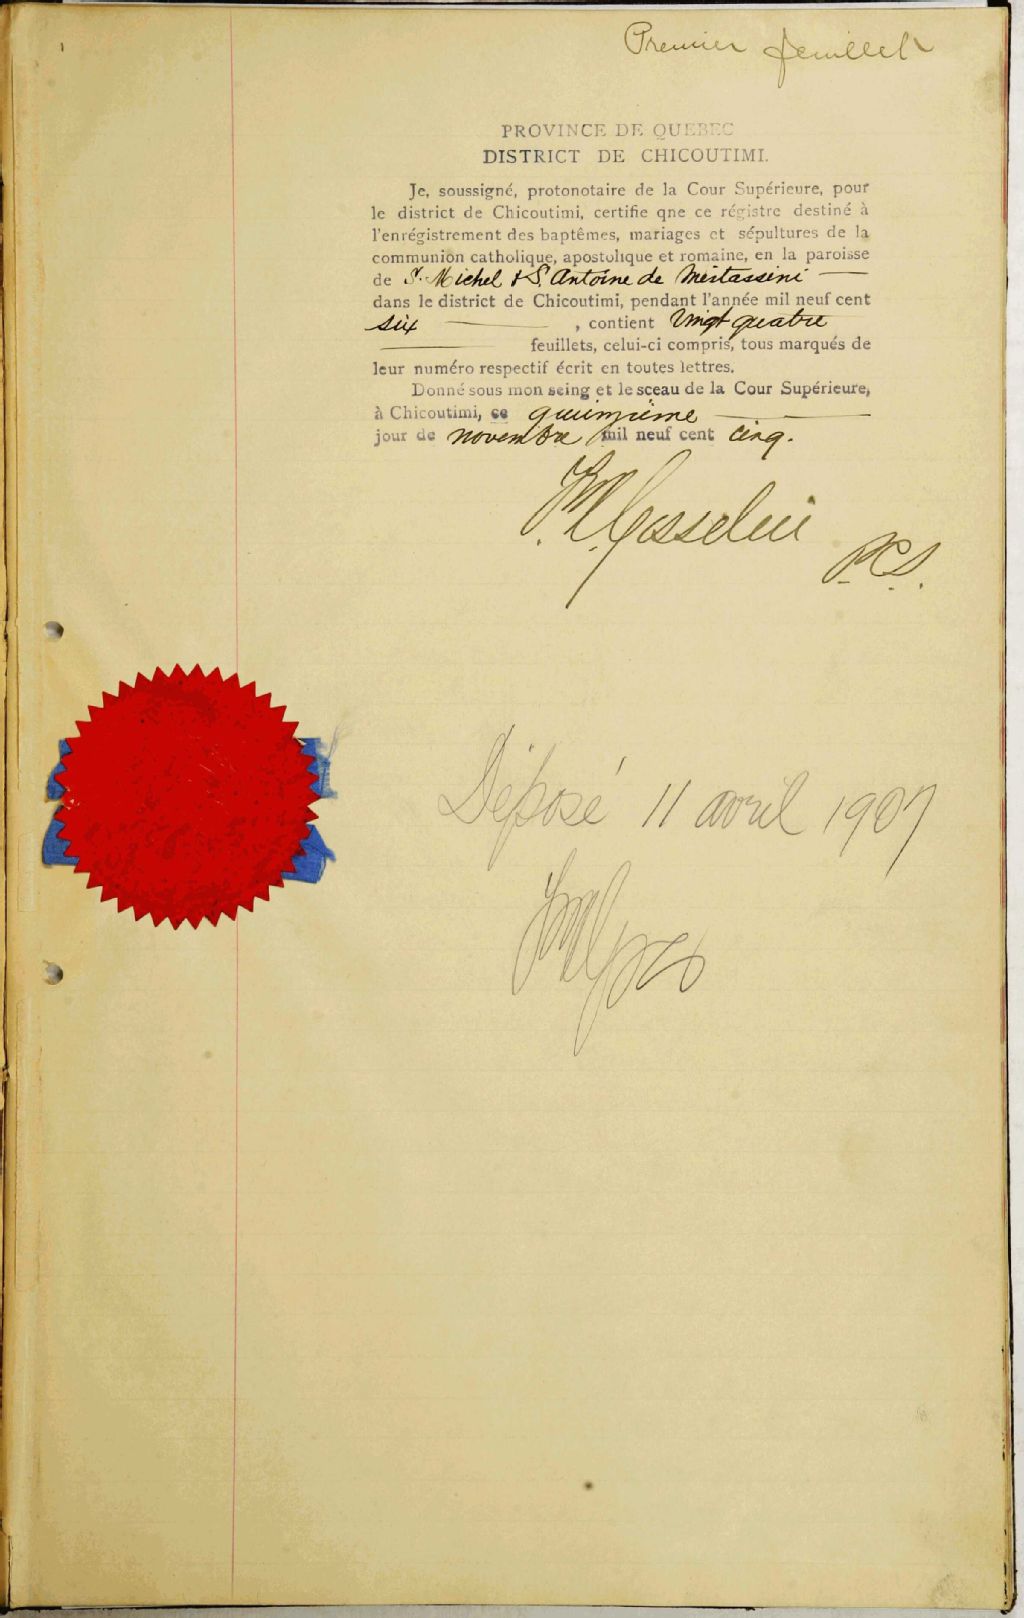 Premier feuillet
PROVINCE DE QUEBEC
DISTRICT DE CHICOUTIMI.
Je, soussigné, protonotaire de la Cour Supérieure, pour
le district de Chicoutimi, certifie qne ce régistre destiné à
l'enrégistrement des baptêmes, mariages et sépultures de la
communion catholique, apostolique et romaine, en la paroisse
de St. Michel & St. Antoine de Mistassini
dans le district de Chicoutimi, pendant l'année mil neuf cent
six , contient Vingt quatre
feuillets, celui-ci compris, tous marqués de
leur numéro respectif écrit en toutes lettres.
Donné sous mon seing et le sceau de la Cour Supérieure,
à Chicoutimi, ce quinzième
jour de novembre mil neuf cent cinq.
Gosselin
P.C.S.
Déposé 11 avril 1907